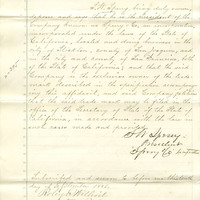 S. N. Sperry, being duly sworn,
deposes and says that he is the President of the
Company known as Sperry & Co., and
incorporated under the laws of the State of
California, located and doing business in the
city of Stockton, county of San Joaquin, and
in the city and county of San Francisco, both
of the State of California, and that the said
Company is the exclusive owner of the trade
mark described in the specification accompany-
ing this affidavit, and the said Company prays
that the said trade mark may be filed in the
office of the Secretary of State of the State of
California, in accordance with the law in
such cases made and provided.
Sperry
President
Sperry & Co
Subscribed and sworn to before me this
day of 188